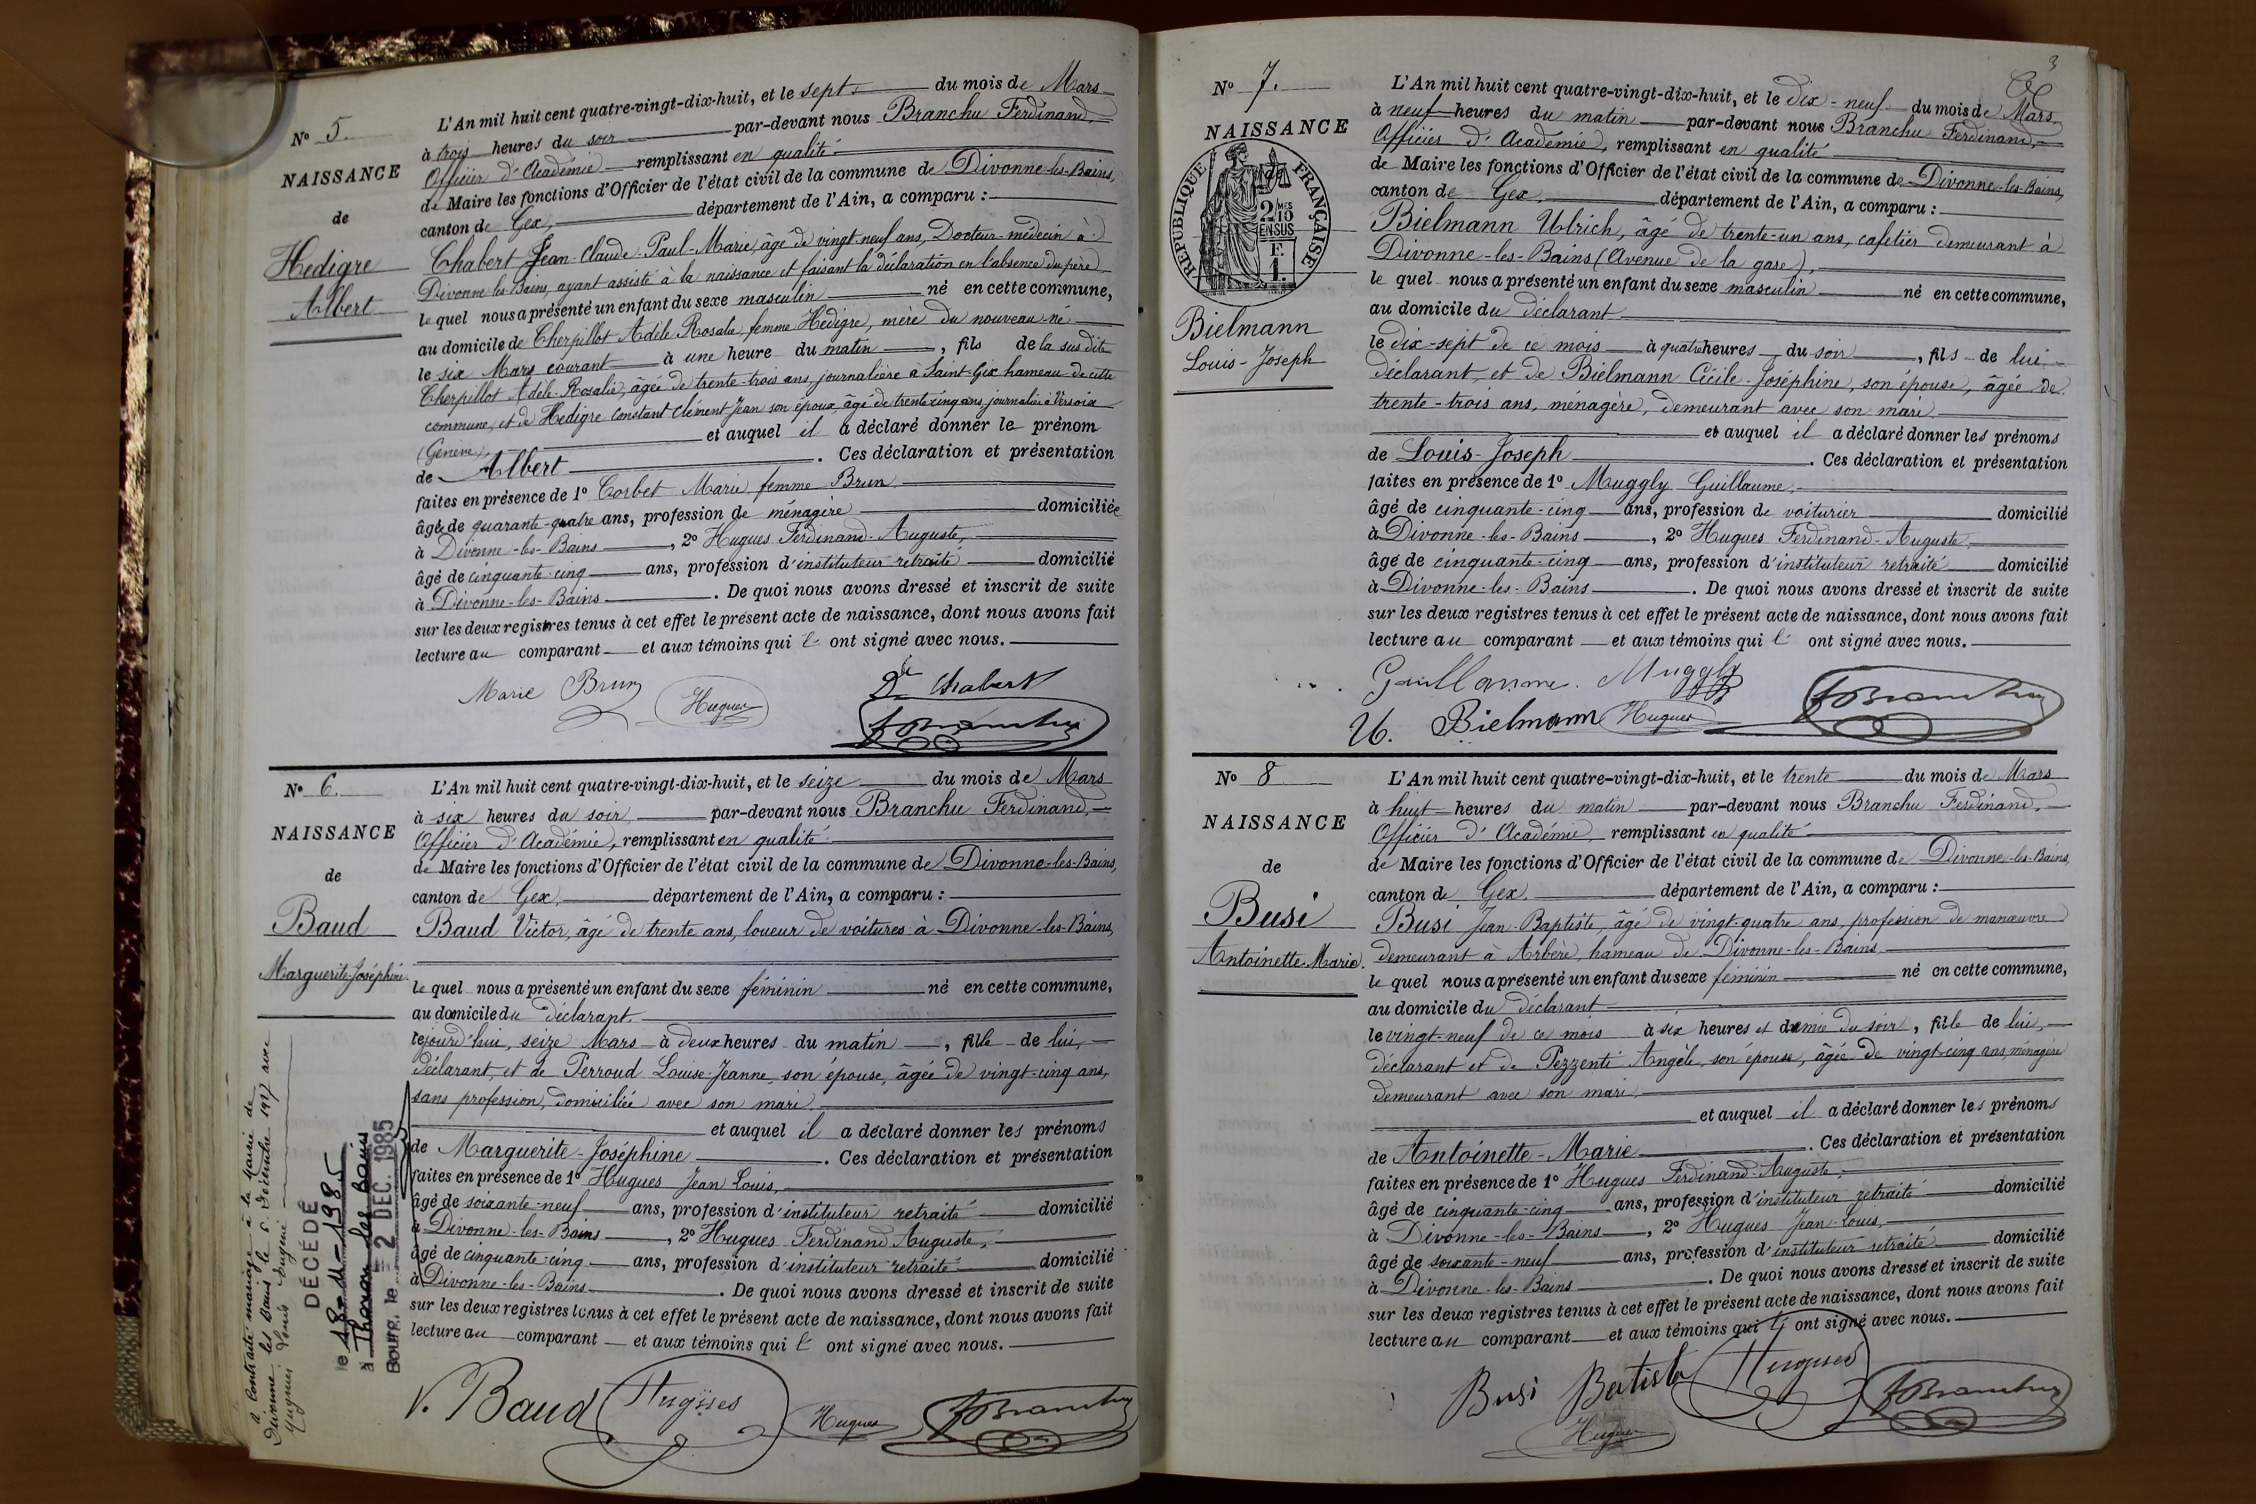 N° 5.
NAISSANCE
de
Hedigre
Albert
L'An mil huit cent quatre-vingt-dix-huit, et le sept, du mois de Mars
à trois heures du soir par-devant nous Branchu Ferdinand,
Officier d'Académie remplissant en qualité
de Maire les fonctions d'Officier de l'état civil de la commune de Divonne-les-Bains,
canton de Gex, département de l'Ain, a comparu :
Chabert Jean-Claude-Paul-Marie, âgé de vingt-neuf ans, Docteur-médecin à
Divonne-les-Bains, ayant assisté à la naissance et faisant la déclaration en l'absence du père
le quel nous a présenté un enfant du sexe masculin né en cette commune,
au domicile de Cherpillot Adèle Rosalie, femme Hedigre, mère du nouveau-né
le six Mars courant à une heure du matin, fils de la sus dite
Cherpillot Adèle-Rosalie, âgée de trente-trois ans, journalière à Saint-Gix hameau de cette
commune, et de Hedigre Constant Clément Jean son époux, âgé de trente cinq ans journalier à Versoix
(Genève), et auquel il a déclaré donner le prénom
de Albert. Ces déclaration et présentation
faites en présence de 1° Corbet Marie, femme Brun
âgée de quarante-quatre ans, profession de ménagère domiciliée
à Divonne-les-Bains, 2° Hugues Ferdinand-Auguste,
âgé de cinquante-cinq ans, profession d'instituteur retraité domicilié
à Divonne-les-Bains. De quoi nous avons dressé et inscrit de suite
sur les deux registres tenus à cet effet le présent acte de naissance, dont nous avons fait
lecture au comparant et aux témoins qui l' ont signé avec nous.
Marie Brun Hugues Dr Chabert
F Branchu
N° 6.
NAISSANCE
de
Baud
Marguerite-Joséphine.
L'An mil huit cent quatre-vingt-dix-huit, et le seize du mois de Mars
à six heures du soir par-devant nous Branchu Ferdinand,
Officier d'Académie, remplissant en qualité
de Maire les fonctions d'Officier de l'état civil de la commune de Divonne-les-Bains,
canton de Gex, département de l'Ain, a comparu :
Baud Victor, âgé de trente ans, loueur de voitures à Divonne-les-Bains,
le quel nous a présenté un enfant du sexe féminin né en cette commune,
au domicile du déclarant,
cejourd'hui, seize Mars à deux heures du matin, fille de lui,
déclarant, et de Perroud Louise-Jeanne, son épouse, âgée de vingt-cinq ans,
sans profession, domiciliée avec son mari.
et auquel il a déclaré donner les prénoms
de Marguerite-Joséphine. Ces déclaration et présentation
faites en présence de 1° Hugues Jean Louis,
âgé de soixante-neuf ans, profession d'instituteur retraité domicilié
à Divonne-les-Bains, 2° Hugues Ferdinand Auguste,
âgé de cinquante-cinq ans, profession d'instituteur retraité domicilié
à Divonne-les-Bains. De quoi nous avons dressé et inscrit de suite
sur les deux registres tenus à cet effet le présent acte de naissance, dont nous avons fait
lecture au comparant et aux témoins qui l' ont signé avec nous.
V. Baud Hugues Hugues F Branchu
a Contracté mariage à la Mairie de
Divonne-les-Bains le Décembre 1927 avec
Louis Eugène
DÉCÉDÉ
le 18-11-1985
à Thonon les Bains
Bourg, le 2 DEC. 1985
3
N° 7.
NAISSANCE
RÉPUBLIQUE FRANÇAISE
2/10MES
EN SUS
F.
1.
Bielmann
Louis-Joseph
L'An mil huit cent quatre-vingt-dix-huit, et le dix-neuf du mois de Mars
à neuf heures du matin par-devant nous Branchu Ferdinand,
Officier d'Académie, remplissant en qualité
de Maire les fonctions d'Officier de l'état civil de la commune de Divonne-les-Bains,
canton de Gex, département de l'Ain, a comparu :
Bielmann Ulrich, âgé de trente-un ans, cafetier demeurant à
Divonne-les-Bains (Avenue de la gare),
le quel nous a présenté un enfant du sexe masculin né en cette commune,
au domicile du déclarant
le dix-sept de ce mois à quatre heures du soir, fils de lui
déclarant, et de Bielmann Cécile-Joséphine, son épouse, âgée de
trente-trois ans, ménagère, demeurant avec son mari
et auquel il a déclaré donner les prénoms
de Louis-Joseph. Ces déclaration et présentation
faites en présence de 1° Muggly Guillaume,
âgé de cinquante-cinq ans, profession de voiturier domicilié
à Divonne-les-Bains, 2° Hugues Ferdinand-Auguste,
âgé de cinquante-cinq ans, profession d'instituteur retraité domicilié
à Divonne-les-Bains. De quoi nous avons dressé et inscrit de suite
sur les deux registres tenus à cet effet le présent acte de naissance, dont nous avons fait
lecture au comparant et aux témoins qui l' ont signé avec nous.
Guillaume Muggly F Branchu
U. Bielmann Hugues
N° 8
NAISSANCE
de
Busi
Antoinette-Marie.
L'An mil huit cent quatre-vingt-dix-huit, et le trente du mois de Mars
à huit heures du matin par-devant nous Branchu Ferdinand,
Officier d'Académie remplissant en qualité
de Maire les fonctions d'Officier de l'état civil de la commune de Divonne-les-Bains,
canton de Gex, département de l'Ain, a comparu :
Busi Jean-Baptiste, âgé de vingt-quatre ans, profession de manœuvre
demeurant à Arbère, hameau de Divonne-les-Bains
le quel nous a présenté un enfant du sexe féminin né en cette commune,
au domicile du déclarant
le vingt-neuf de ce mois à six heures et demie du soir, fille de lui,
déclarant et de Pezzenti Angèle, son épouse, âgée de vingt-cinq ans, ménagère
demeurant avec son mari
et auquel il a déclaré donner les prénoms
de Antoinette-Marie. Ces déclaration et présentation
faites en présence de 1° Hugues Ferdinand-Auguste
âgé de cinquante-cinq ans, profession d'instituteur retraité domicilié
à Divonne-les-Bains, 2° Hugues Jean-Louis,
âgé de soixante-neuf ans, profession d'instituteur retraité domicilié
à Divonne-les-Bains. De quoi nous avons dressé et inscrit de suite
sur les deux registres tenus à cet effet le présent acte de naissance, dont nous avons fait
lecture au comparant et aux témoins qui l' ont signé avec nous.
Busi Batista Hugues F Branchu
Hugues